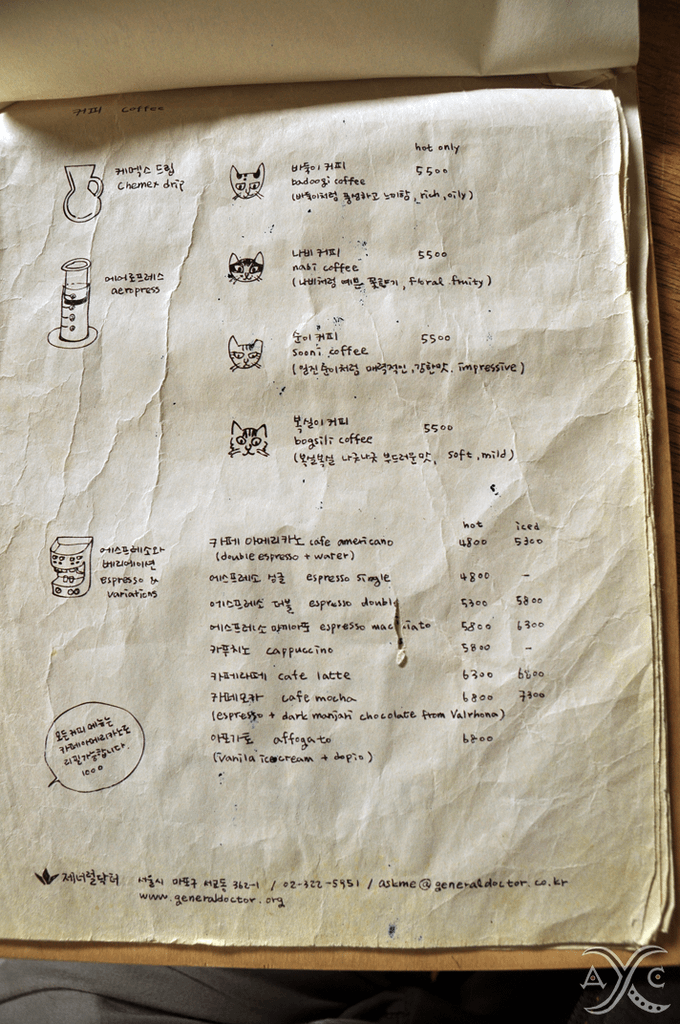 커피 coffee
hot only
케멕스 드립
chemex drip
에어로프레스
aeropress
바둑이 커피 5500
badoogi coffee
(바둑이처럼 풍성하고 느끼함, rich, oily)
나비 커피 5500
nabi coffee
(나비처럼 예쁜 꽃향기, floral. fruity)
순이 커피 5500
sooni coffee
(멍진 순이처럼 매력적인, 강한맛. impressive)
복실이 커피 5500
bogsili coffee
(복실복실 나긋나긋 부드러운 맛, soft, mild)
에스프레소와
베리에이션
espresso &
variations
hot iced
카페 아메리카노 cafe americano 4800 5300
(double espresso + water)
에스프레소 싱글 espresso single 4800 -
에스프레소 더블 espresso double 5300 5800
에스프레소 마끼아또 espresso macchiato 5800 6300
카푸치노 cappuccino 5800 -
카페라떼 cafe latte 6300 6800
카페모카 cafe mocha 6800 7300
(espresso + dark manjari chocolate from Valrhona)
아포가토 affogato 6800
(vanila icecream + dopio)
모든 커피 메뉴는
카페아메리카노로
리필가능합니다.
1000
제너럴닥터 서울시 마포구 서교동 362-1 / 02-322-5951 / askme@generaldoctor.co.kr
www.generaldoctor.org
AYC